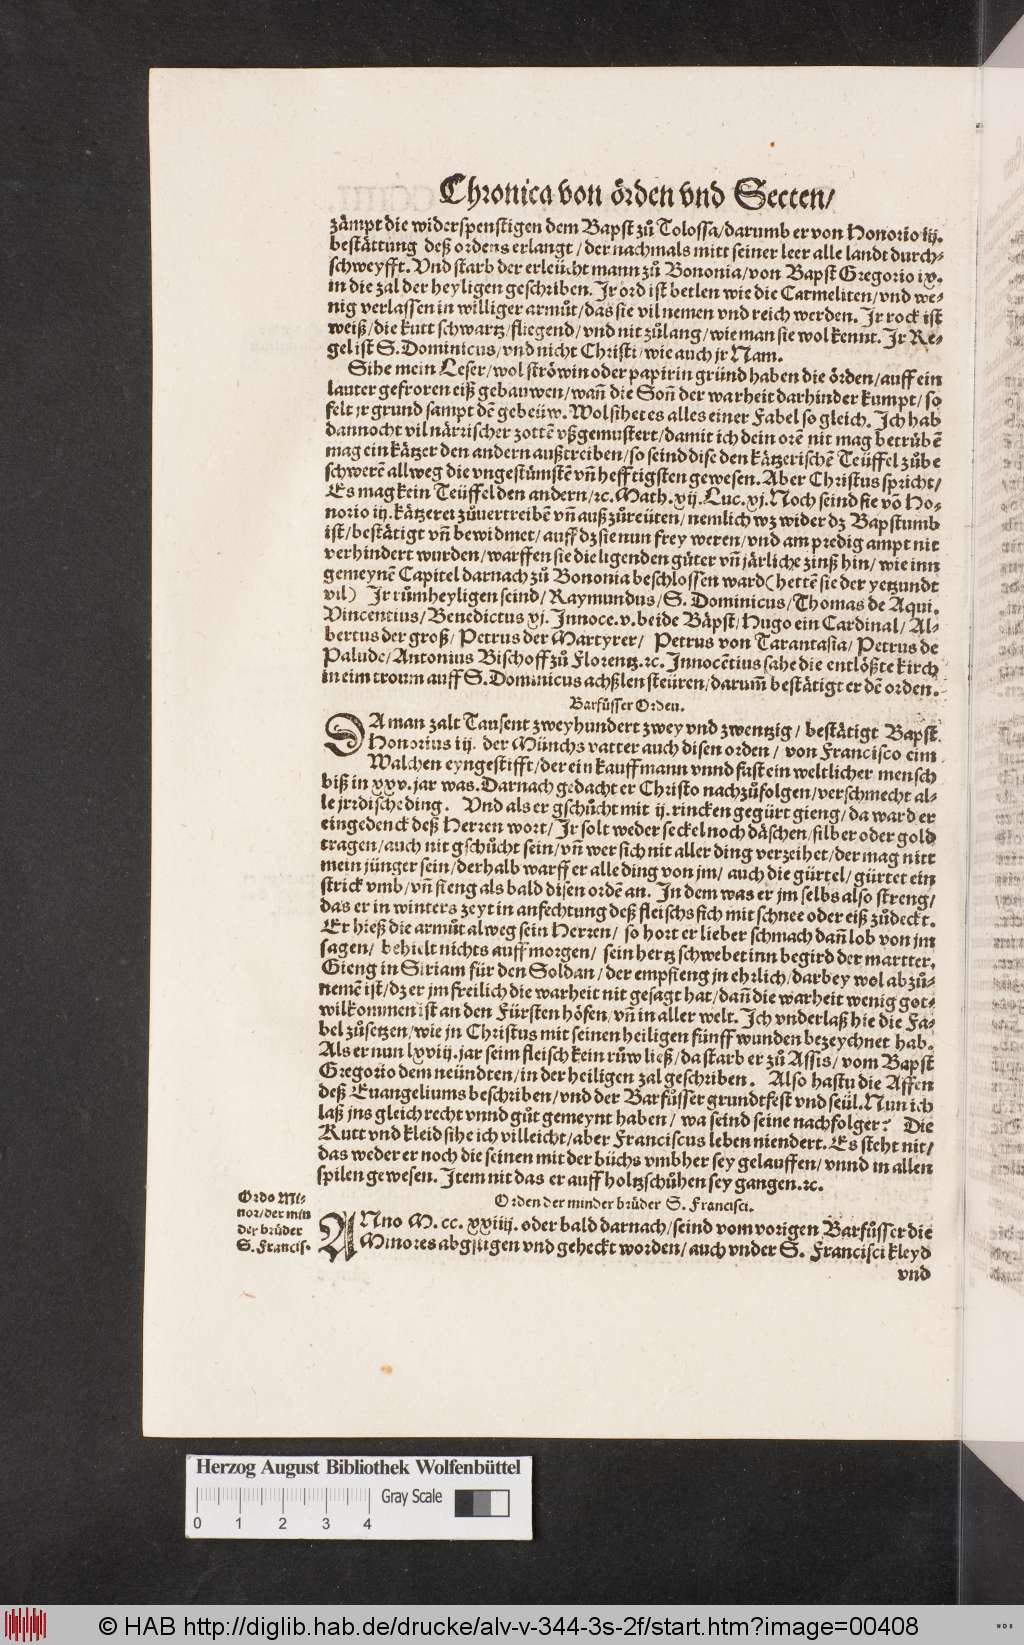 Chronica von örden vnd Secten/
zämpt die widerspenstigen dem Bapst zů Tolossa/darumb er von Honorio iij.
bestättung deß ordens erlangt/der nachmals mitt seiner leer alle landt durch⸗
schweyfft. Vnd starb der erleücht mann zů Bononia/von Bapst Gregorio ix.
in die zal der heyligen geschriben. Ir ord ist betlen wie die Carmeliten/vnd we⸗
nig verlassen in williger armůt/das sie vil nemen vnd reich werden. Ir rock ist
weiß/die kutt schwartz/fliegend/vnd nit zůlang/wie man sie wol kennt. Ir Re⸗
gel ist S. Dominicus/vnd nicht Christi/wie auch jr Nam.
Sihe mein Leser/wol ströwin oder papirin gründ haben die örden/auff ein
lauter gefroren eiß gebauwen/wañ die Soñ der warheit darhinder kumpt/so
felt jr grund sampt dē gebeüw. Wol sihet es alles einer Fabel so gleich. Ich hab
dannocht vil närrischer zottē vßgemustert/damit ich dein orē nit mag betrübē
mag ein kätzer den andern außtreiben/so seind dise den kätzerischē Teüffel zů be
schwerē allweg die vngestümstē vñ hefftigsten gewesen. Aber Christus spricht/
Es mag kein Teüffel den andern/ꝛc. Math. xij. Luc. xj. Noch seind sie vō Ho⸗
norio iij. kätzerei zůuertreibē vñ auß zůreüten/nemlich wz wider dz Bapstumb
ist/bestätigt vñ bewidmet/auff dz sie nun frey weren/vnd am predig ampt nit
verhindert wurden/warffen sie die ligenden güter vñ järliche zinß hin/wie inn
gemeynē Capitel darnach zů Bononia beschlossen ward (hetten sie der yetzundt
vil) Ir růmheyligen seind/Raymundus/S. Dominicus/Thomas de Aqui.
Vincentius/Benedictus xj. Innoce. v. beide Bäpst/Hugo ein Cardinal/Al⸗
bertus der groß/Petrus der Martyrer/Petrus von Tarantasia/Petrus de
Palude/Antonius Bischoff zů Florentz. ꝛc. Innocētius sahe die entlößte kirch
in eim troum auff S. Dominicus achßlen steüren/darum̄ bestätigt er dē orden.
Barfůsser Orden.
DA man zalt Tausent zweyhundert zwey vnd zwentzig/bestätigt Bapst
Honorius iij. der Münchs vatter auch disen orden/von Francisco eim
Walchen eyngestifft/der ein kauffmann vnnd fast ein weltlicher mensch
biß in xxv. jar was. Darnach gedacht er Christo nachzůfolgen/verschmecht al⸗
le jrrdische ding. Vnd als er gschücht mit ij. rincken gegürt gieng/da ward er
eingedenck deß Herren wort/Ir solt weder seckel noch däschen/silber oder gold
tragen/auch nit gschücht sein/vñ wer sich nit aller ding verzeihet/der mag nitt
mein jünger sein/derhalb warff er alle ding von jm/auch die gürtel/gürtet ein
strick vmb/vñ fieng als bald disen ordē an. In dem was er jm selbs also streng/
das er in winters zeyt in anfechtung deß fleischs sich mit schnee oder eiß zůdeckt.
Er hieß die armůt alweg sein Herren/so hort er lieber schmach dañ lob von jm
sagen/behielt nichts auff morgen/sein hertz schwebet inn begird der martter.
Gieng in Siriam für den Soldan/der empfieng jn ehrlich/darbey wol abzů⸗
nemē ist/dz er jm freilich die warheit nit gesagt hat/dañ die warheit wenig got⸗
wilkommen ist an den Fürsten höfen/vñ in aller welt. Ich vnderlaß hie die Fa⸗
bel zůsetzen/wie jn Christus mit seinen heiligen fünff wunden bezeychnet hab.
Als er nun lxviij. jar seim fleisch kein růw ließ/da starb er zů Assis/vom Bapst
Gregorio dem neündten/in der heiligen zal geschriben. Also hastu die Affen
deß Euangeliums beschriben/vnd der Barfůsser grundtfest vnd seül. Nun ich
laß jns gleich recht vnnd gůt gemeynt haben/wa seind seine nachfolger? Die
Kutt vnd kleid sihe ich villeicht/aber Franciscus leben niendert. Es steht nit/
das weder er noch die seinen mit der büchs vmbher sey gelauffen/vnnd in allen
spilen gewesen. Item nit das er auff holtzschühen sey gangen. ꝛc.
Orden der minder brüder S. Francisci.
Ordo Mi⸗
nor/der min
der brüder
S. Francis.
ANno M. cc. xxiiij. oder bald darnach/seind vom vorigen Barfůsser die
Minores abgstigen vnd geheckt worden/auch vnder S. Francisci kleyd
vnd
Herzog August Bibliothek Wolfenbüttel
Gray Scale
0 1 2 3 4
© HAB http://diglib.hab.de/drucke/alv-v-344-3s-2f/start.htm?image=00408